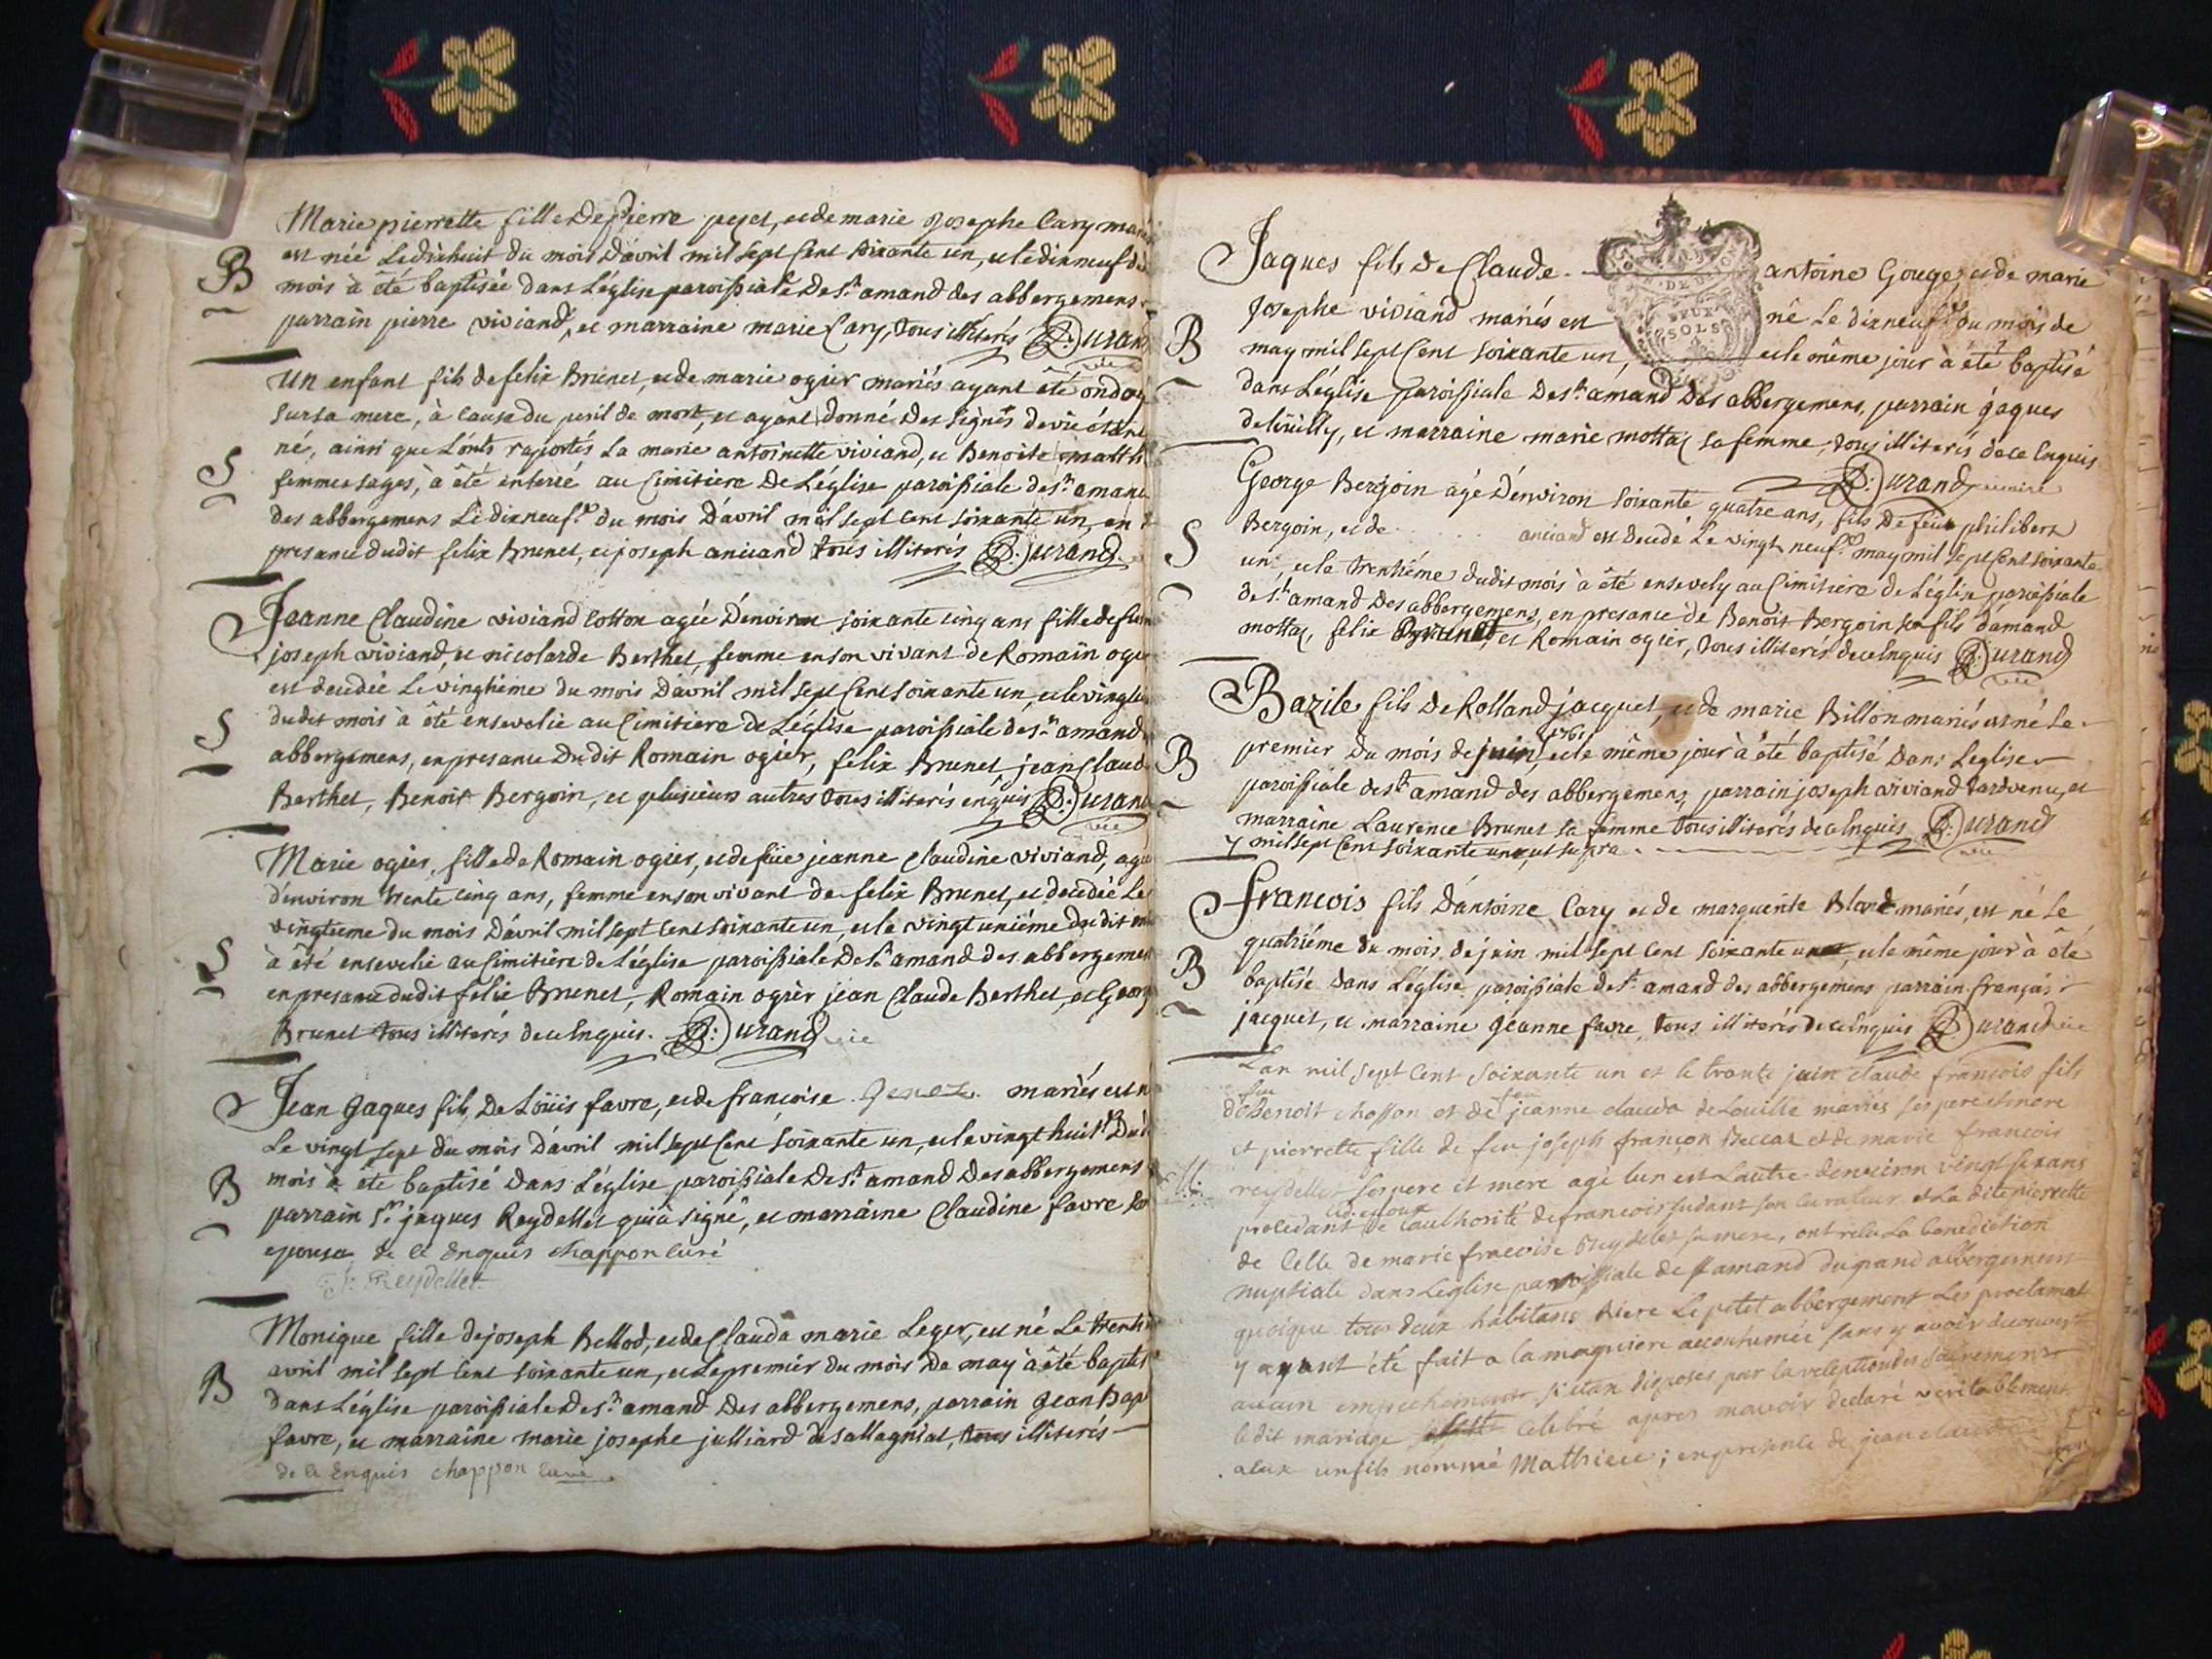 Marie pierrette fille De pierre pejet, et de marie Josephe Cary
B
est néé Le dixhuit du mois D'avril mil sept Cent soixante un, et le dixneuf
mois à êté baptiséé dans L'église paroissiale De St amand des abbergemens
parrain pierre viviand, et marraine marie Cary, tous illiterés D: Durand
un enfant fils de felix Brunet, et de marie ogier mariés ayant êté
sur sa mere, à cause du peril de mort, et ayant donné Des signes de vie étant
né, ainsi que L'onts raportés La marie antoinette viviand, et Benoite
S
femmes sages, à êté enterré au Cimitiere De L'église paroissiale de St amand
des abbergemens Le dixneuf.e du mois D'avril mil sept cent soixante un, en
presance dudit felix Brunet, et joseph anciand tous illiterés D: Durand
Jeanne Claudine viviand Cotton agéé D'environ soixante cinq ans fille de
joseph viviand, et nicolarde Berthet, femme en son vivant de Romain
est decedéé Le vingtiéme du mois D'avril mil sept Cent soixante un, et le
S
dudit mois à êté ensevelie au Cimitiere de L'église paroissiale de St amand
abbergemens, en presance Dudit Romain ogier, felix Brunet, jean
Berthet, Benoit Bergoin, et plusieurs autres tous illiterés enquis D: Durand
Marie ogier, fille de Romain ogier, et de füe jeanne Claudine viviand,
d'environ trente cinq ans, femme en son vivant de felix Brunet, et decedéé Le
vingtieme du mois D'avril mil sept Cent soixante un, et le vingt uniéme dudit
S
à êté ensevelie au Cimitiére de L'église paroissiale De St amand des
en presance dudit felix Brunet, Romain ogiér jean Claude Berthet, et
Brunet tous illiterés de ce Enquis. D: Durand
Jean Jaques fils De Loüis favre, et de francoise Genoz mariés
Le vingt sept du mois D'avril mil sept Cent soixante un, et le vingt huit
B
mois à êté baptisé Dans L'église paroissiale De St amand Des abbergemens
parrain Sr. jaques Reydellet qui à signé, et marraine Claudine favre
epouse de ce Enquis chappon curé
J: Reydellet
Monique fille de joseph Bellod, et de Clauda marie Leger, est né Le
B
avril mil sept Cent soixante un, et Le premier du mois De may à êté
dans L'église paroissiale De St amand Des abbergemens, parrain Jean
favre, et marraine marie josephe julliard de sallagniat, tous illiterés
de ce Enquis chappon curé
Jaques fils De Claude antoine Gouge, et de marie
DEUX SOLS
Josephe viviand mariés est né Le dixneuf.e du mois de
B
may mil sept Cent soixante un, et le même jour à êté baptisé
dans L'église paroissiale De St amand Des abbergemens, parrain jaques
et marraine marie mottaz sa femme, tous illiterés de ce Enquis
D: Durand
George Bergoin âgé D'environ soixante quatre ans, fils De feüe philibert
Bergoin, et de anciand est decedé Le vingt neuf.e may mil sept Cent soixante
S
un, et le trentiéme dudit mois à êté ensevely au Cimitiere de L'église paroissiale
de St amand Des abbergemens, en presance de Benoit Bergoin son fils d'amand
mottaz, felix Brunet, et Romain ogier, tous illiterés de ce Enquis D: Durand
Bazile fils De Rolland jacquet, et de marie Billon mariés est né Le
1761
B
premier du mois de juin, et le même jour à êté baptisé Dans L'eglise
paroissiale de St amand des abbergemens, parrain joseph viviand tardvenu, et
marraine Laurence Brunet sa femme tous illiterés de ce Enquis D: Durand
mil sept Cent soixante un, ut supra
Francois fils D'antoine Cary et de marguerite Blanc mariés, est né Le
quatriéme du mois de juin mil sept Cent soixante un, et le même jour à êté
B
baptisé Dans L'église paroissiale de St amand des abbergemens parrain françois
jacquet, et marraine Jeanne favre, tous illiterés de ce Enquis D: Durand
L'an mil sept Cent soixante un et le trante juin claude francois fils
feu feu
de Benoit chosson et de jeanne clauda mariés ses pere et mere
et pierrette fille de feu joseph françon Beccaz et de marie francois
M
reydellet ses pere et mere agé lun et Lautre denviron vingt six ans
procedant de Lauthorité de francois son curateur et La dite pierrette
de Celle de marie francoise Reydelet sa mere, ont recu La benediction
nuptiale dans L'eglise paroissiale de St amand du grand abbergement
quoique tous deux habitans Riere Le petit abbergement Les proclamat
y ayant été fait a la maniere accoutumée sans y avoir decouvert
aucun empechement setan disposes par la reception des sacremens
ledit mariage Celebré apres mavoir declaré veritablement
a eux un fils nommé Mathieu; en presence de jean claude